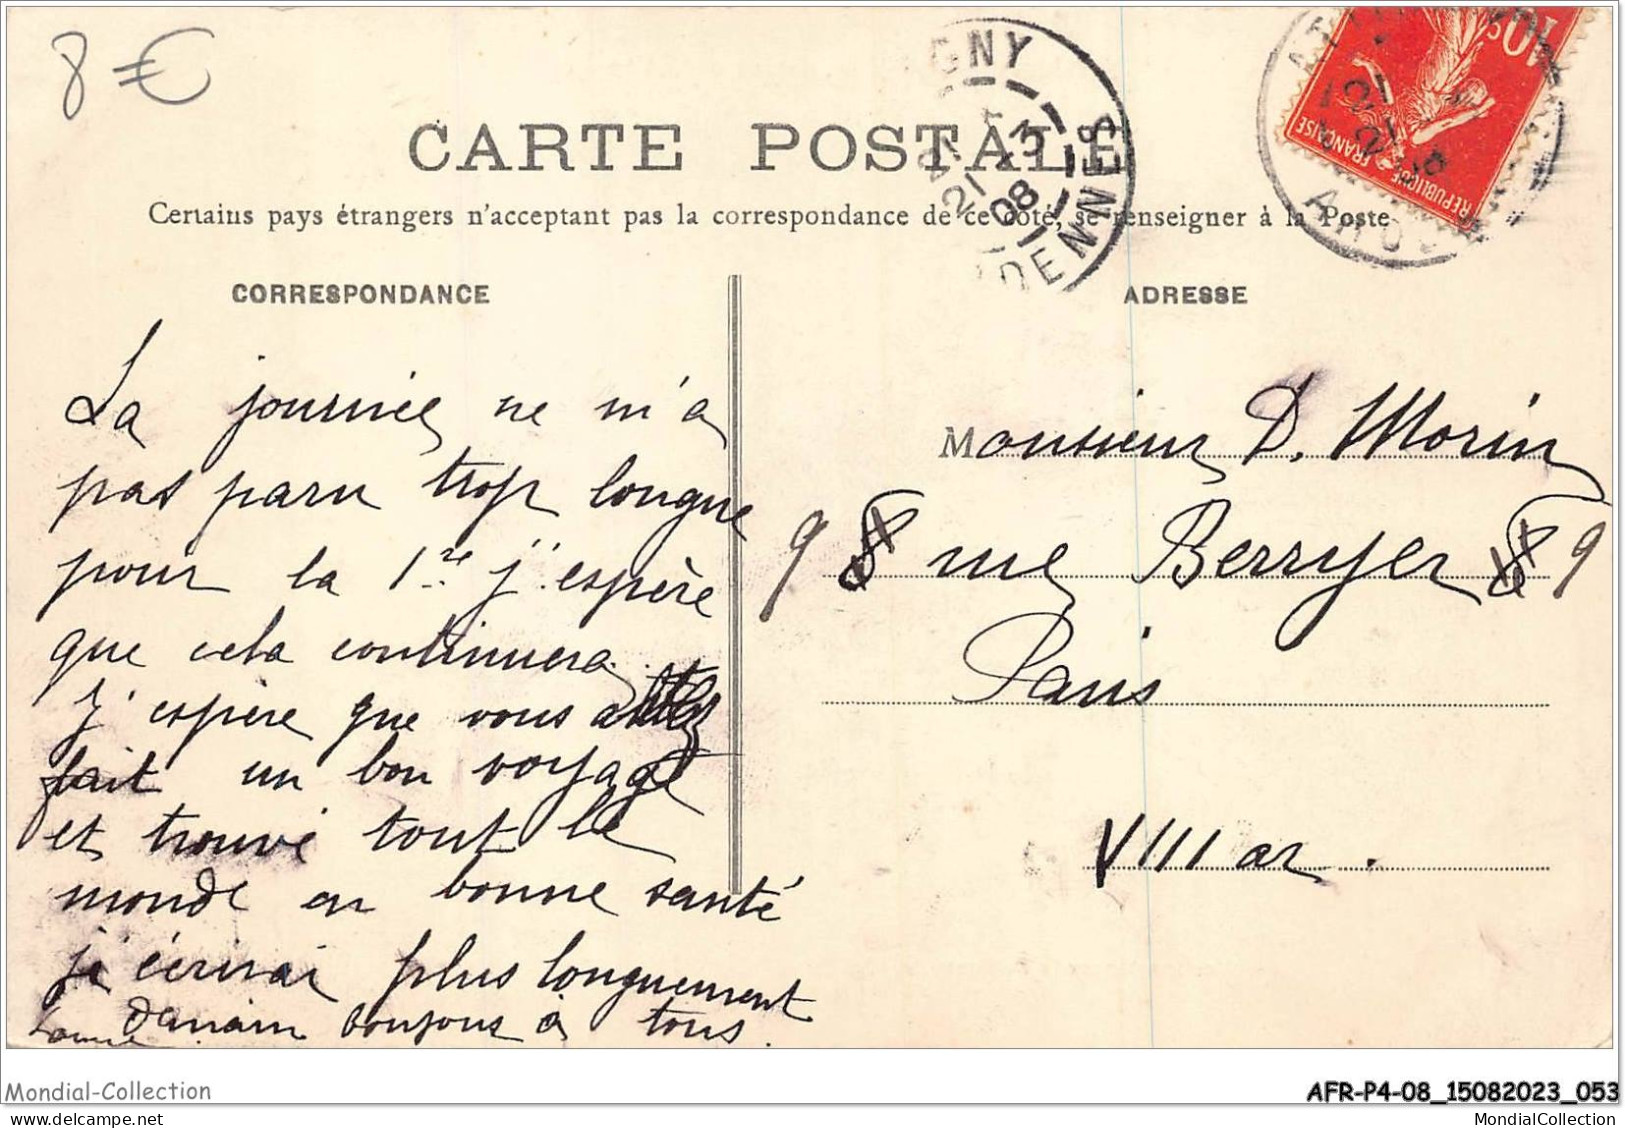 8 €
CARTE POSTALE
Certains pays étrangers n'acceptent pas la correspondance de ce côté, se renseigner à la Poste
GNY
21 -3
08
ARDENNES
10c
REPUBLIQUE FRANÇAISE
CORRESPONDANCE
ADRESSE
La journée ne m'a
pas paru trop longue
pour la 1re j'espère
que cela continuera
J'espère que vous
fait un bon voyage
et trouvé tout le
monde en bonne santé
j'écrirai plus longuement
demain bonjour à tous.
Monsieur D. Morin
9 8 rue Berryer 8 9
Paris
VIII ar.
Mondial-Collection
AFR-P4-08_15082023_053
MondialCollection